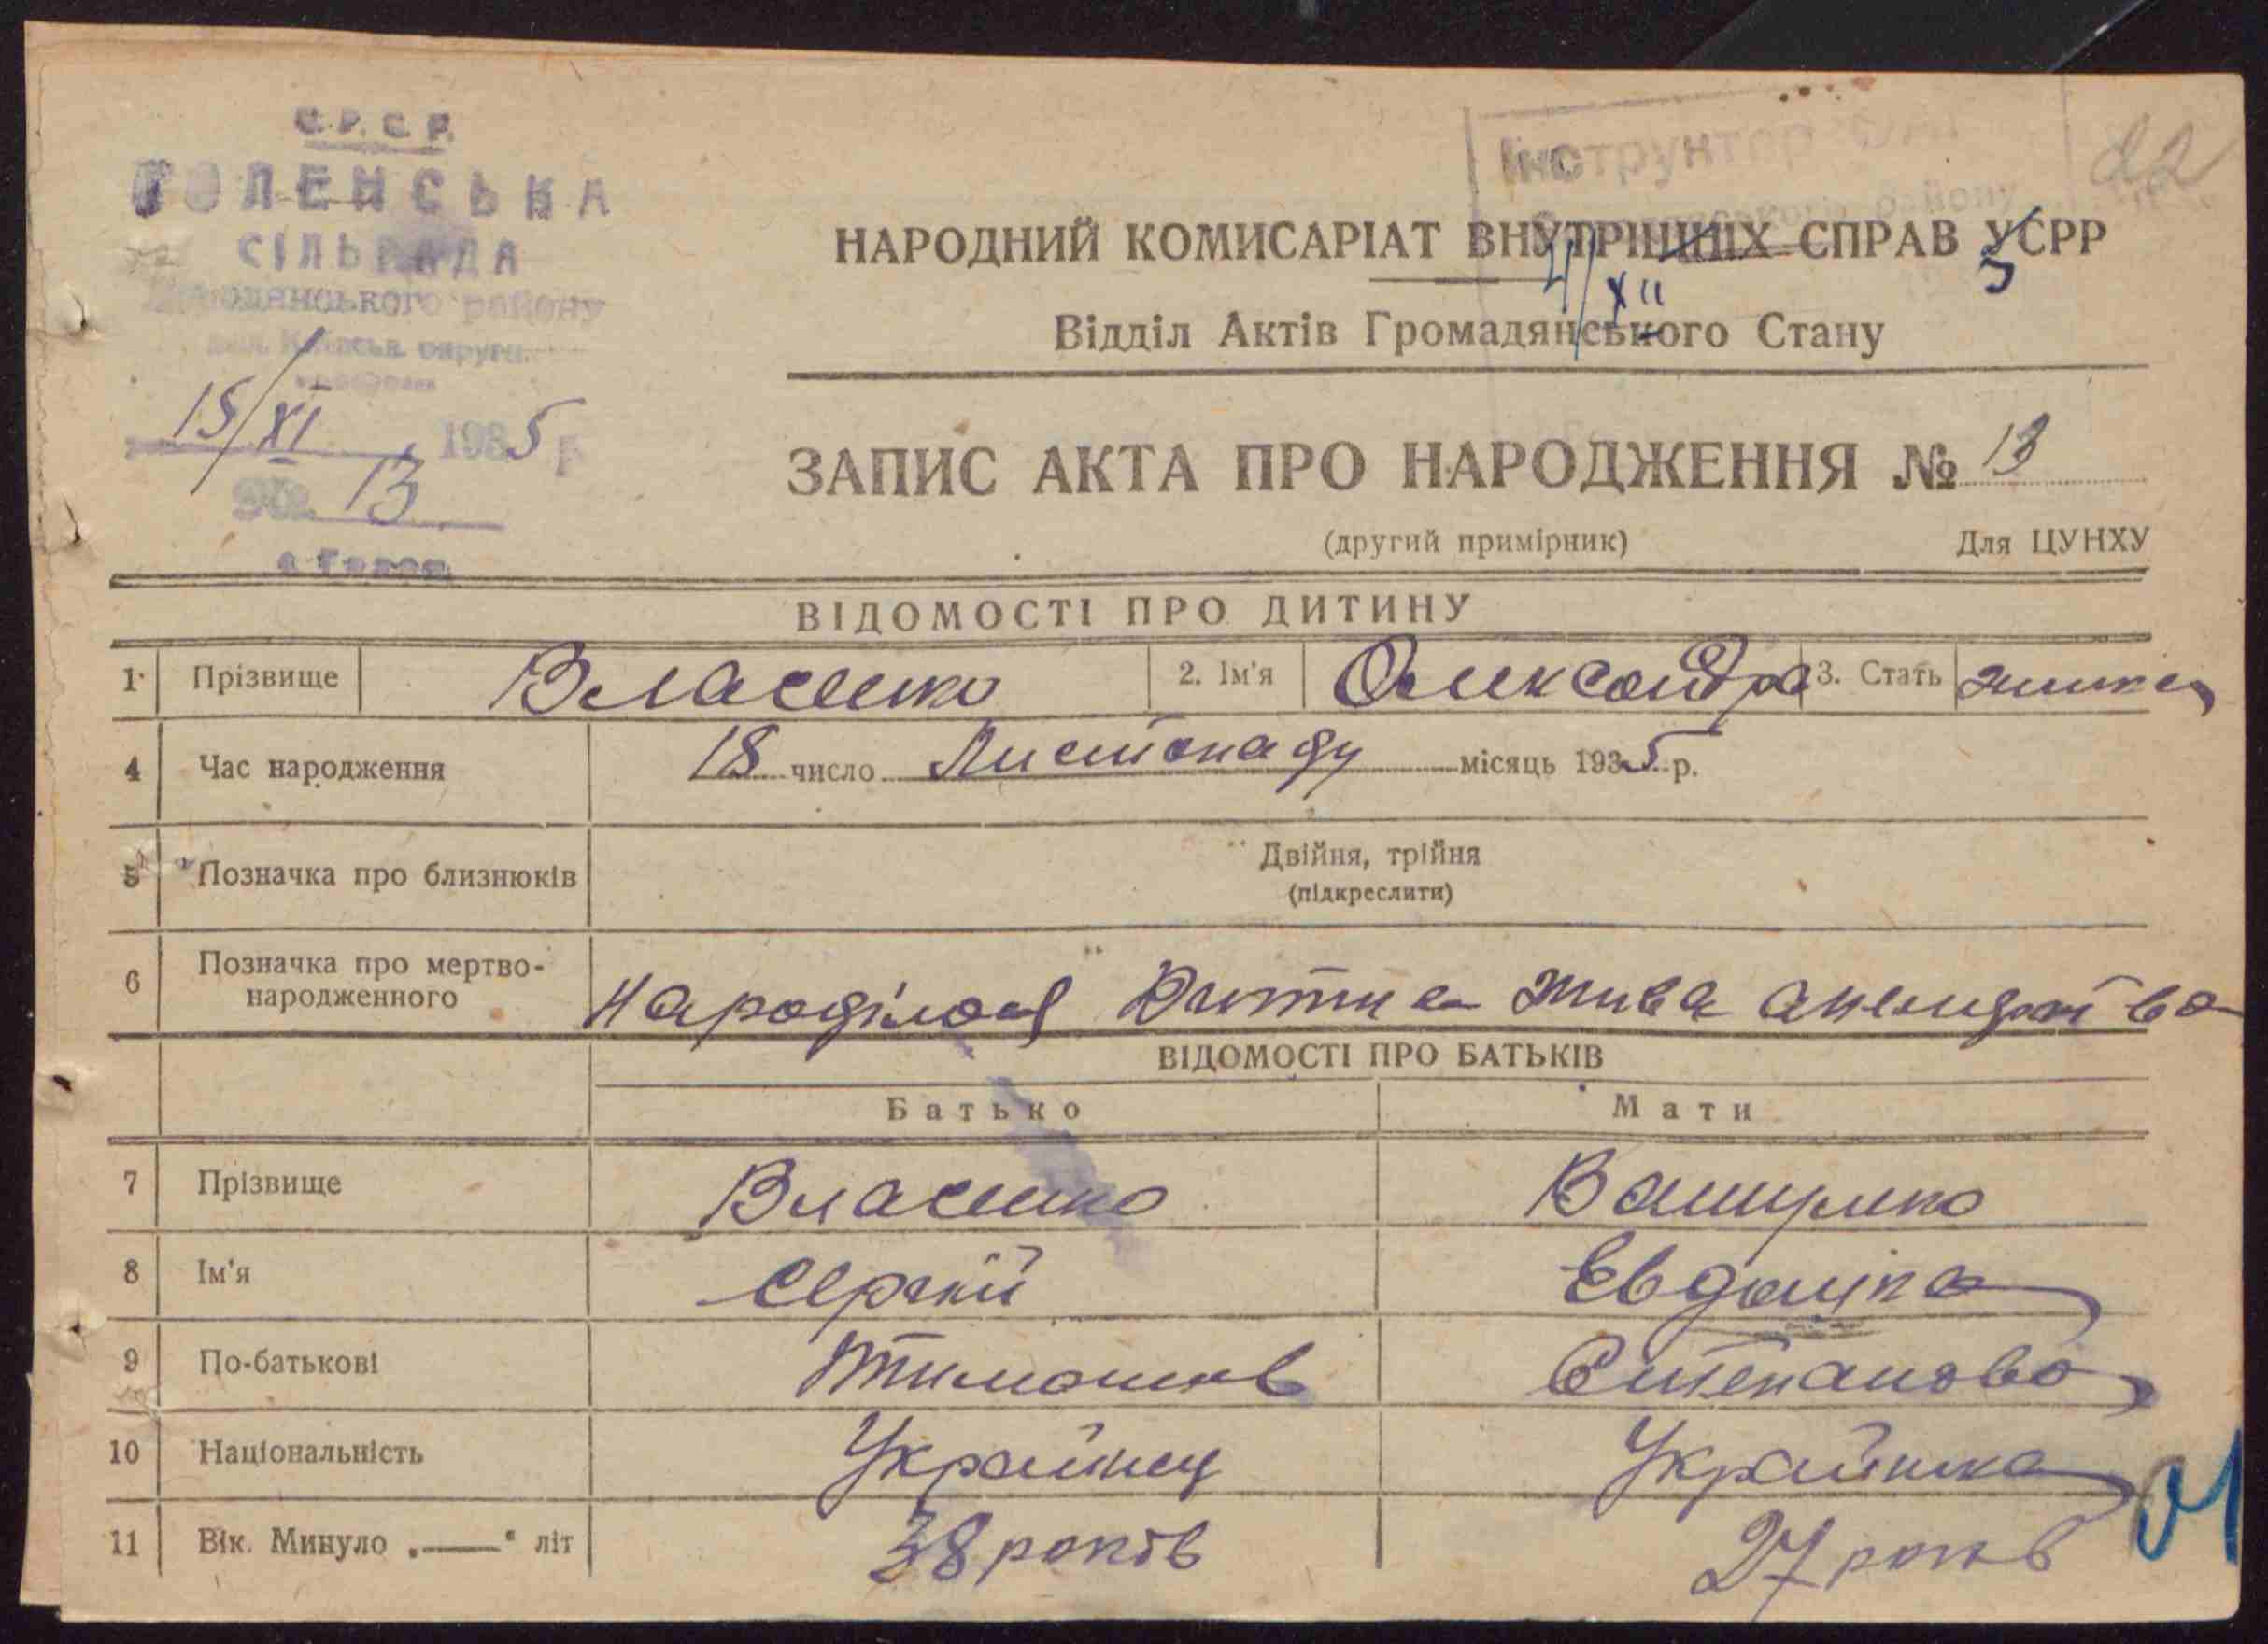 С.Р.С.Р.
СІЛЬРАДА
району
15/XI 1935 р
№ 13
Інструктор
району
22
НАРОДНИЙ КОМИСАРІАТ ВНУТРІШНІХ СПРАВ УСРР
4/XII 5
Відділ Актів Громадянського Стану
ЗАПИС АКТА ПРО НАРОДЖЕННЯ № 13
(другий примірник) Для ЦУНХУ
ВІДОМОСТІ ПРО ДИТИНУ
1 Прізвище Власенко 2. Ім'я Олександра 3. Стать
4 Час народження 18 число Листопаду місяць 1935 р.
5 Позначка про близнюків Двійня, трійня
(підкреслити)
6 Позначка про мертво-
народженного Народілося Дитина жива
ВІДОМОСТІ ПРО БАТЬКІВ
Батько Мати
7 Прізвище Власенко
8 Ім'я Сергій Евдошка
9 По-батькові Степанова
10 Національність Украйнец Украйнка
11 Вік. Минуло „—" літ 38 років 27 років